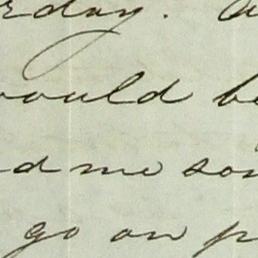 rday. 
would be
d me so
go on p